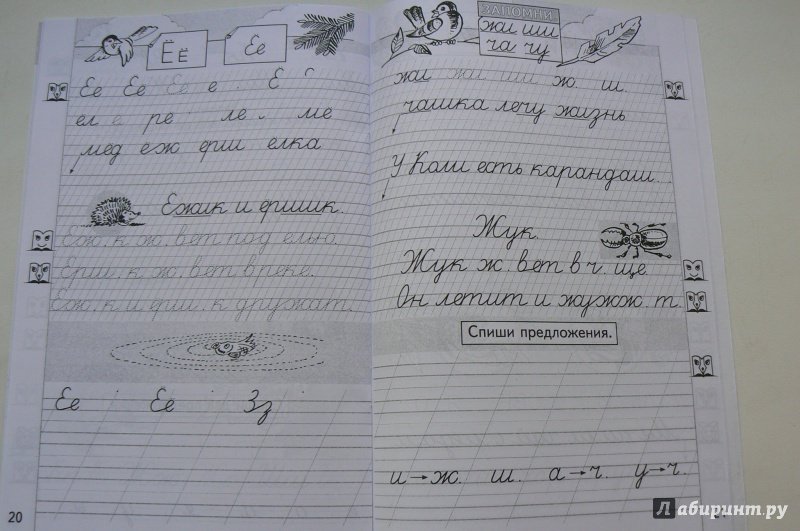 Ё ё
Е е
Ее Ее Ее е Ё
ел е ре ле ме
мед еж ерш елка
Ежик и ершик.
Еж.к ж.вет под елью.
Ерш.к ж.вет в реке.
Еж.к и ерш.к дружат.
Ее Ее Зз
20
ЗАПОМНИ
жи ши
ча чу
жи жи ши ж. ш.
чашка лечу жизнь
У Коли есть карандаш.
Жук.
Жук ж.вет в ч.ще.
Он летит и жужж.т.
Спиши предложения.
и→ж. ш. а→ч. у→ч.
Лабиринт.ру